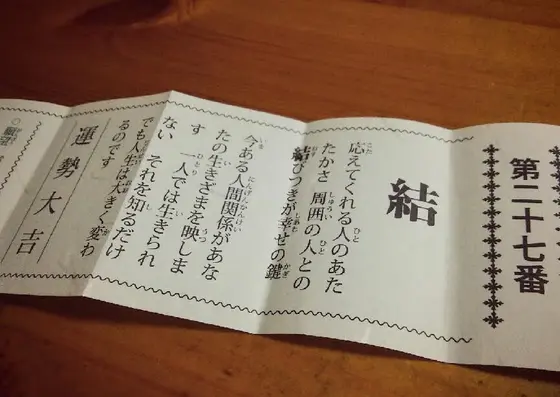 第二十七番
結
応えてくれる人のあた
たかさ 周囲の人との
結びつきが幸せの鍵
今ある人間関係があな
たの生きざまを映しま
す 一人では生きられ
ない それを知るだけ
でも人生は大きく変わ
るのです
運勢大吉
○願望